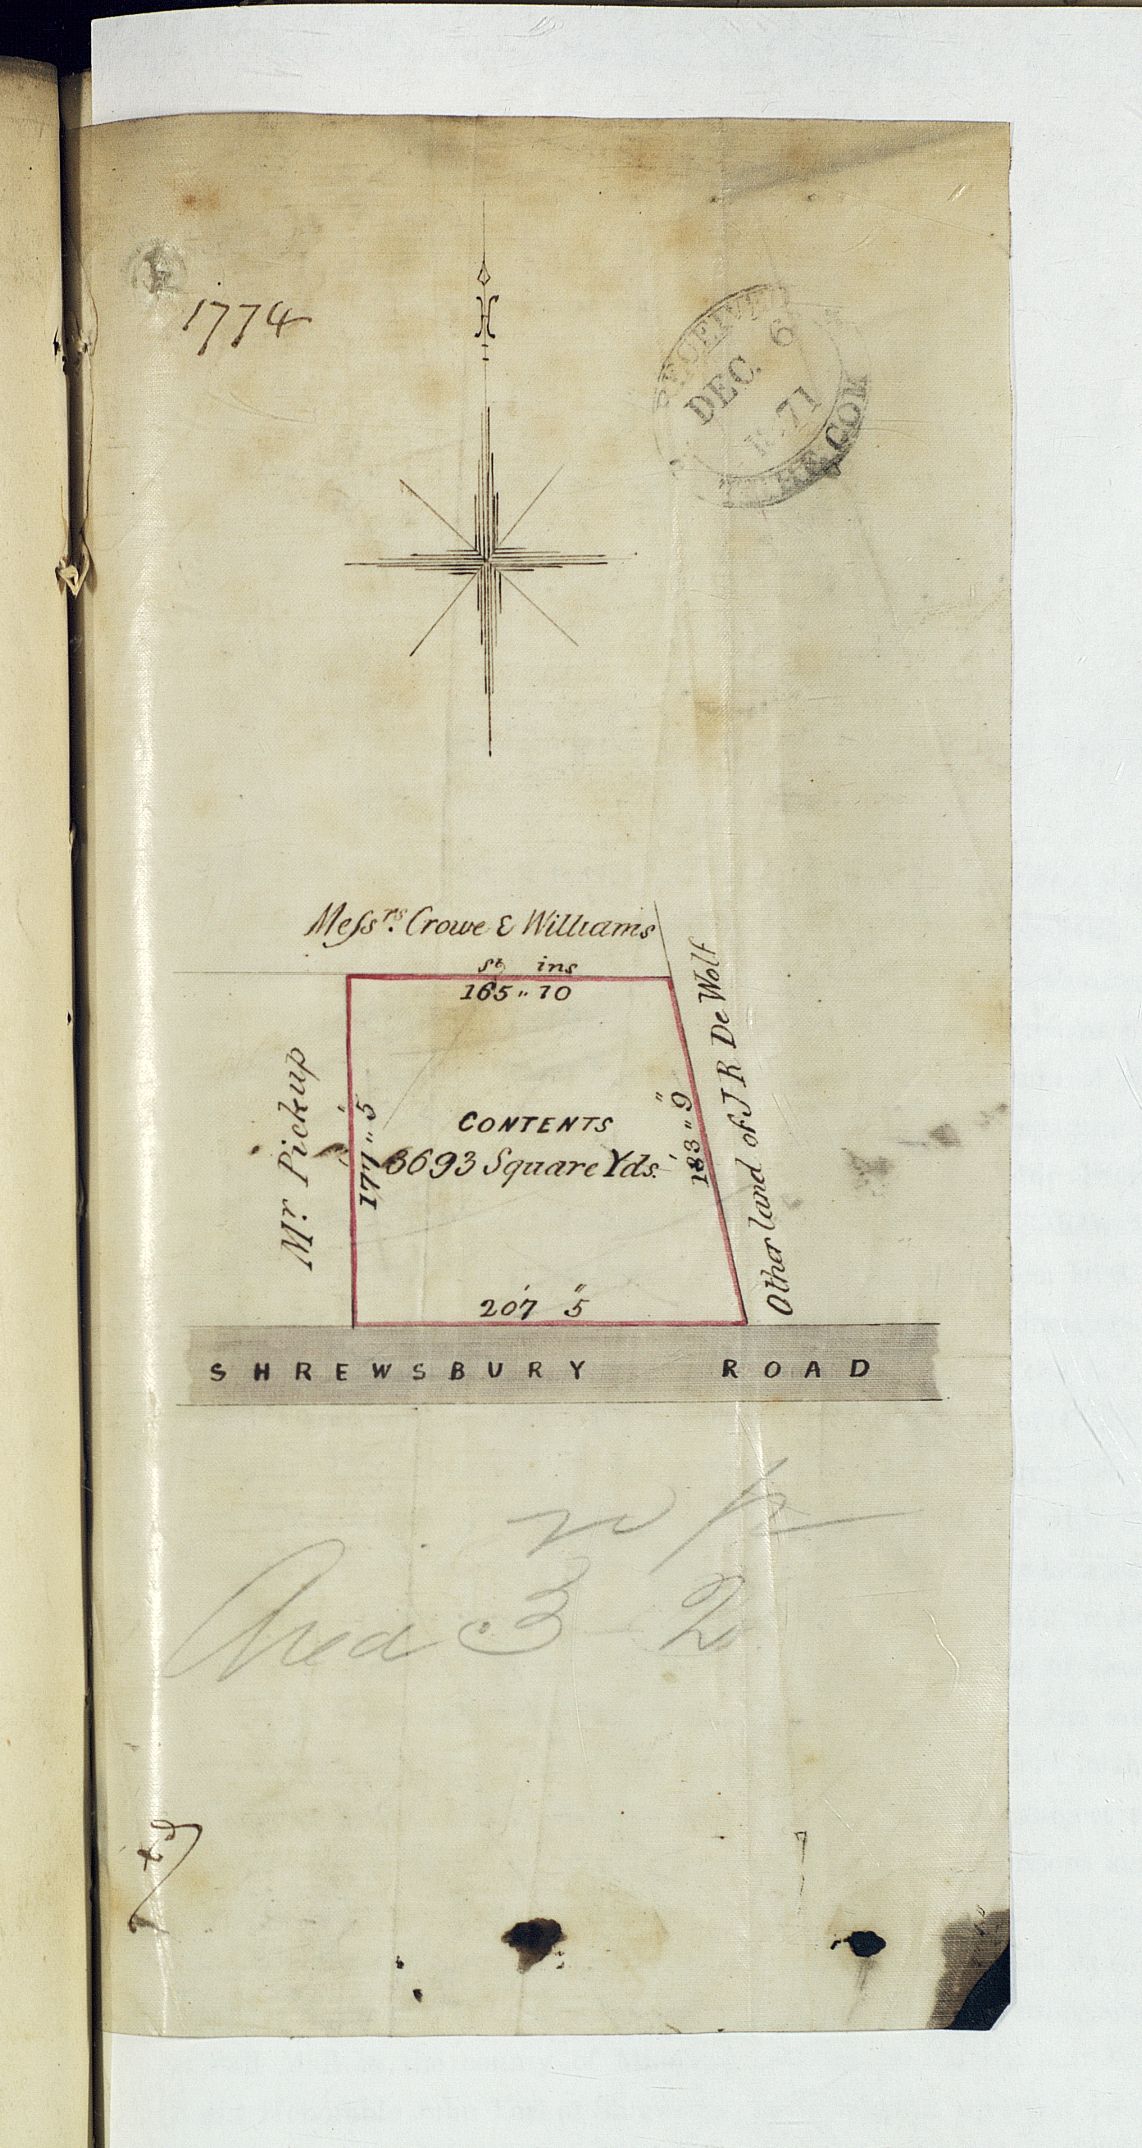 1774
RECEIVED
DEC. 6
71
THE COM
N
Messrs. Crowe & Williams
ft ins
165 " 10
Mr. Pickup
177' " 5
CONTENTS
3693 Square Yds.
183' " 9"
Other land of J R De Wolf
207' 5"
SHREWSBURY ROAD
r p
Area 3 2